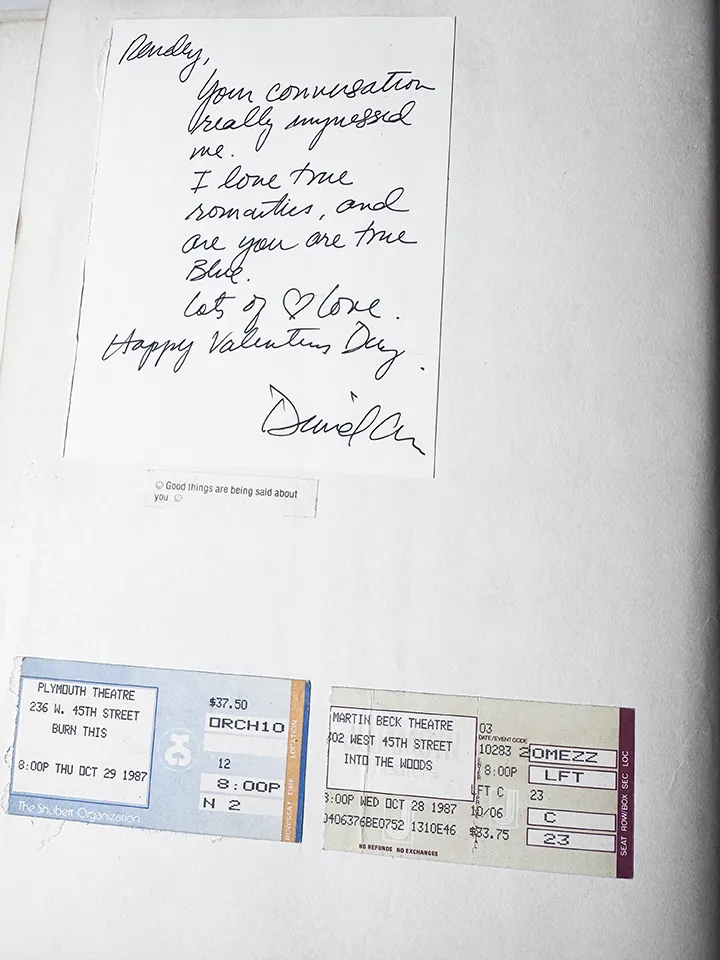 Your conversation
really impressed
me.
I love true
romantics, and
are you are true
Blue.
Lots of ♡ love.
Happy Valentines Day.
David
☺ Good things are being said about
you. ☺
PLYMOUTH THEATRE
236 W. 45TH STREET
BURN THIS
8:00P THU OCT 29 1987
The Shubert Organization
$37.50
ORCH10
12
8:00P
N 2
LOCATION
ROW/SEAT TIME
MARTIN BECK THEATRE
302 WEST 45TH STREET
INTO THE WOODS
8:00P WED OCT 28 1987
0406376BE0752 1310E46
NO REFUNDS NO EXCHANGES
03
DATE/EVENT CODE
10283 2OMEZZ
8:00P LFT
LFT C 23
10/06 C
$33.75 23
SEAT ROW/BOX SEC LOC